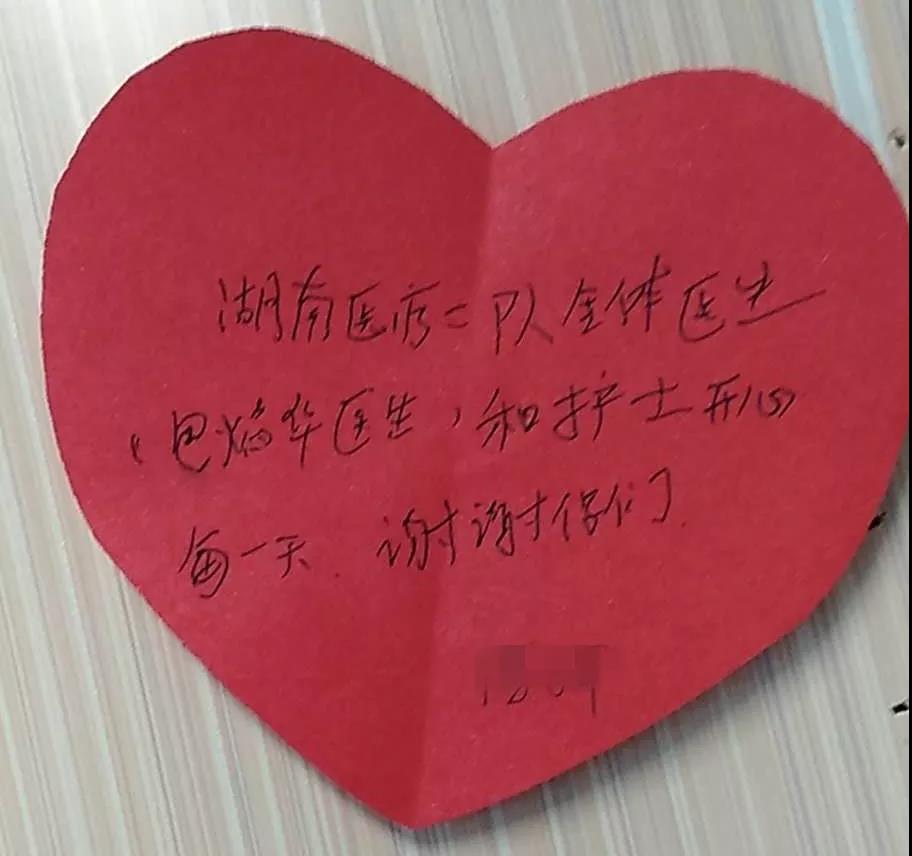 湖南医疗二队全体医生
(包焰华医生,和护士开心
每一天.谢谢你们.